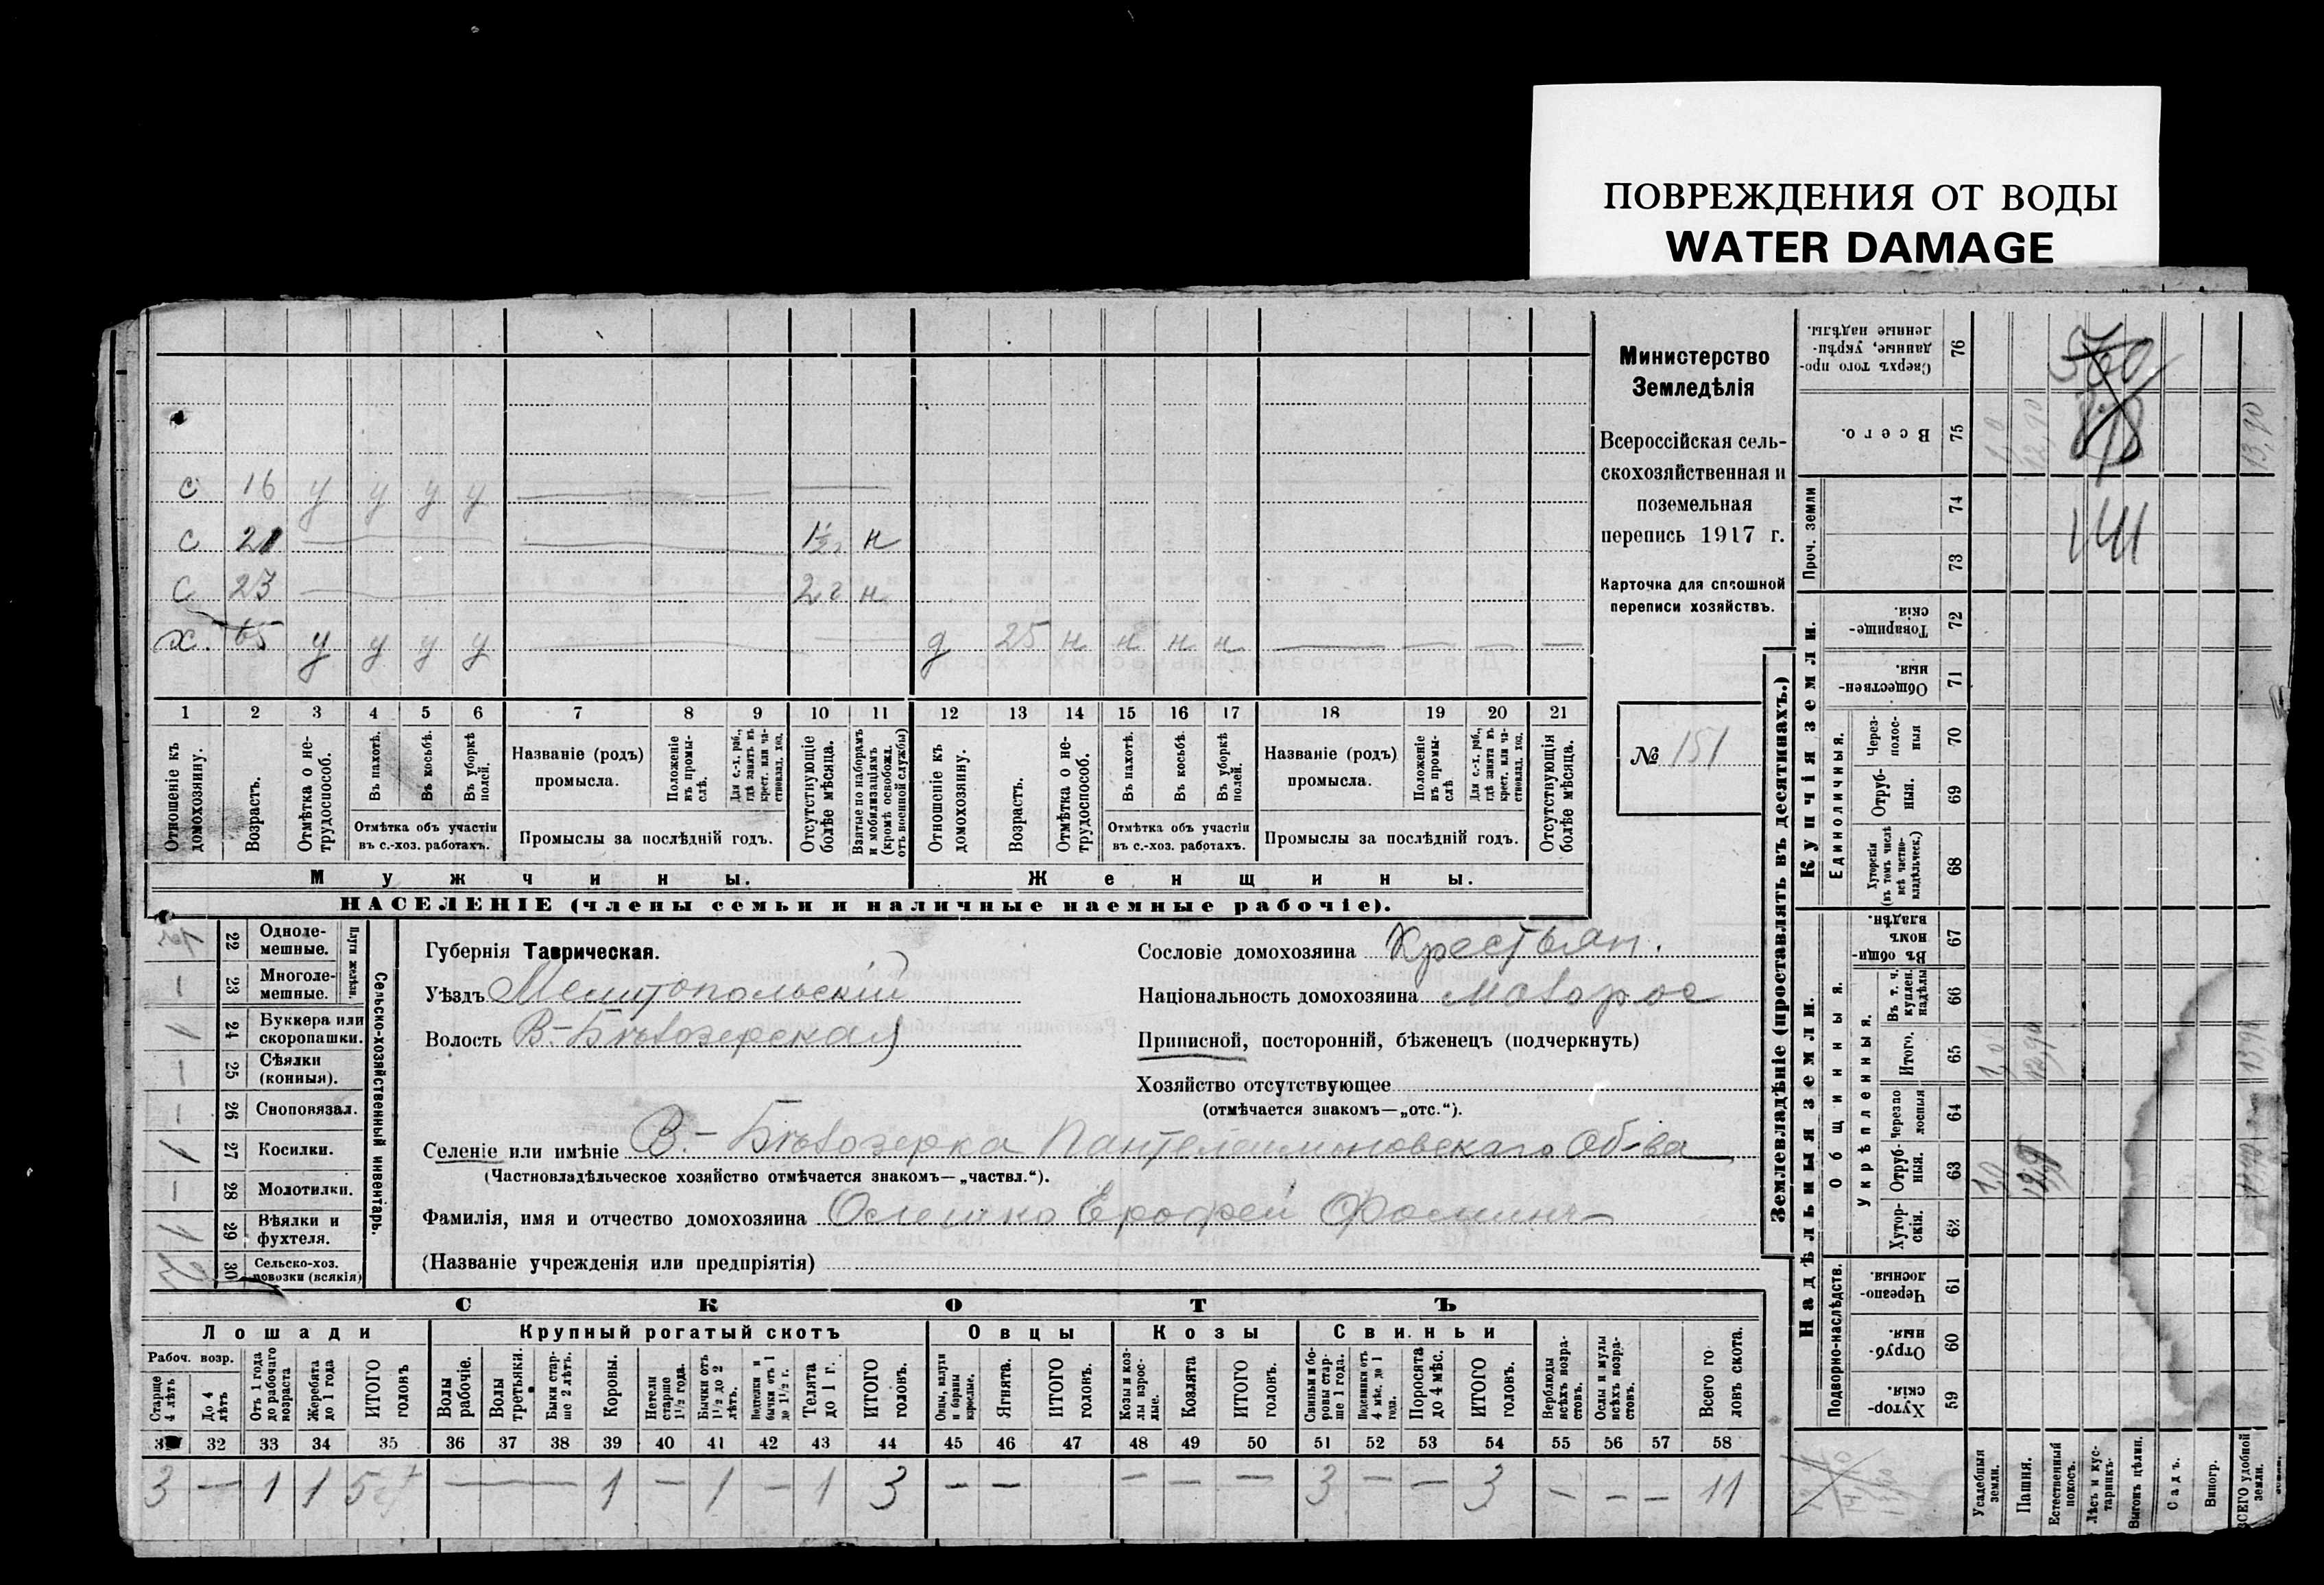 ПОВРЕЖДЕНИЯ ОТ ВОДЫ
WATER DAMAGE
с 16 у у у у
с 21 1½ г н
с 23 2 г н
х. 65 у у у у — — — д 25 н н н н — — — —
1 2 3 4 5 6 7 8 9 10 11 12 13 14 15 16 17 18 19 20 21
Отношеніе къ домохозяину.
Возрастъ.
Отмѣтка о не-трудоспособ.
Въ пахотѣ.
Въ косьбѣ.
Въ уборкѣ полей.
Отмѣтка объ участіи въ с.-хоз. работахъ.
Названіе (родъ) промысла.
Положеніе въ промы-слѣ.
Для с.-х. раб., гдѣ занятъ въ крест. или ча-стновлад. хоз.
Промыслы за послѣдній годъ.
Отсутствующіе болѣе мѣсяца.
Взятые по наборамъ и мобилизаціямъ (кромѣ освобожд. отъ военной службы)
Отношеніе къ домохозяину.
Возрастъ.
Отмѣтка о не-трудоспособ.
Въ пахотѣ.
Въ косьбѣ.
Въ уборкѣ полей.
Отмѣтка объ участіи въ с.-хоз. работахъ.
Названіе (родъ) промысла.
Положеніе въ промы-слѣ
Для с.-х. раб., гдѣ занята въ крест. или ча-стновлад. хоз.
Промыслы за послѣдній годъ.
Отсутствующія болѣе мѣсяца.
Мужчины.
Женщины.
НАСЕЛЕНІЕ (члены семьи и наличные наемные рабочіе).
Министерство
Земледѣлія
Всероссійская сель-
скохозяйственная и
поземельная
перепись 1917 г.
Карточка для сплошной
переписи хозяйствъ.
№ 151
Сельско-хозяйственный инвентарь.
Плуги желѣзн.
22 Одноле-мешные.
— 23 Многоле-мешные.
1 24 Буккера или скоропашки.
— 25 Сѣялки (конныя).
— 26 Сноповязал.
1 27 Косилки.
— 28 Молотилки.
1 29 Вѣялки и фухтеля.
30 Сельско-хоз. повозки (всякія)
Губернія Таврическая.
Уѣздъ Мелитопольскій
Волость В-Бѣлозерская
Сословіе домохозяина Крестьян.
Національность домохозяина Малорос
Приписной, посторонній, бѣженецъ (подчеркнуть)
Хозяйство отсутствующее
(отмѣчается знакомъ—„отс.“).
Селеніе или имѣніе В.- Бѣлозерка Пантелеимоновскаго Об-ва
(Частновладѣльческое хозяйство отмѣчается знакомъ—„частвл.“).
Фамилія, имя и отчество домохозяина Олешко Ерофей Фомин
(Названіе учрежденія или предпріятія)
СКОТЪ
Лошади Крупный рогатый скотъ Овцы Козы Свиньи
Рабоч. возр.
Старше 4 лѣтъ
До 4 лѣтъ
Отъ 1 года до рабочаго возраста
Жеребята до 1 года
ИТОГО головъ
Волы рабочіе.
Волы третьяки.
Быки стар-ше 2 лѣтъ.
Коровы.
Нетели старше 1½ года.
Бычки отъ 1½ до 2 лѣтъ.
Подтелки и бычки отъ 1 до 1½ г.
Телята до 1 г.
ИТОГО головъ.
Овцы, валухи и бараны взрослые.
Ягнята.
ИТОГО головъ.
Козы и коз-лы взрос-лые.
Козлята
ИТОГО головъ.
Свиньи и бо-ровы стар-ше 1 года.
Подсвинки отъ 4 мѣс. до 1 года.
Поросята до 4 мѣс.
ИТОГО головъ.
Верблюды всѣхъ возра-стовъ.
Ослы и мулы всѣхъ возра-стовъ.
Всего го-ловъ скота.
32 33 34 35 36 37 38 39 40 41 42 43 44 45 46 47 48 49 50 51 52 53 54 55 56 57 58
3 — 1 1 5 — 1 — 1 — 1 3 — — — — — 3 — — 3 — — — 11
Землевладѣніе (проставлять въ десятинахъ.)
Купчія земли.
Надѣльныя земли.
Сверхъ того про-данные, укрѣп-ленные надѣлы. 76
Всего. 75
Проч. земли 74 73
Товарище-скія. 72
Обществен-ныя. 71
Единоличныя.
Через-полос-ныя 70
Отруб-ныя. 69
Хуторскія (въ томъ числѣ всѣ частно-владѣльческ.) 68
Общинныя.
Въ общин-номъ владѣн. 67
Укрѣпленныя.
Въ т. ч. куплен. надѣлы 66
Итого. 65
Черезпо-лосныя 64
Отруб-ныя. 63
Хутор-скія. 62
Подворно-наслѣдств.
Черезпо-лосныя. 61
Отруб-ныя. 60
Хутор-скія. 59
Усадебныя земли.
Пашня.
Естественный покосъ.
Лѣсъ и кус-тарникъ.
Выгонъ цѣлин.
Садъ.
Виногр.
ВСЕГО удобной земли.
141
1,0 12,90 13,90